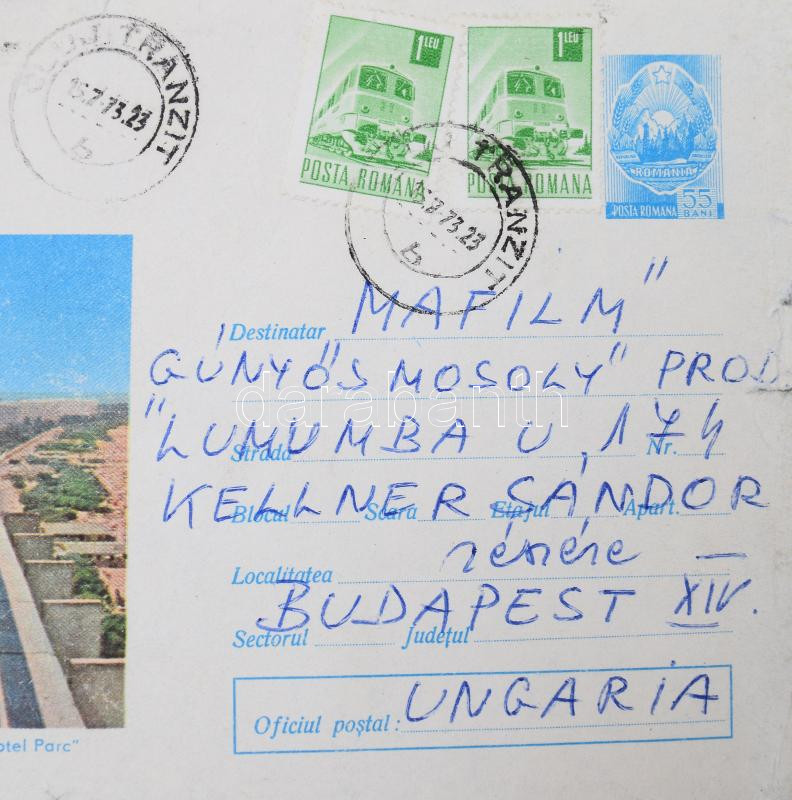 1 LEU
POSTA ROMÂNA
1 LEU
POSTA ROMANA
ROMANIA
POSTA ROMANA 55 BANI
CLUJ TRANZIT
15.7.73.23
b
TRANZIT
15.7.73.23
b
Destinatar "MAFILM"
GÚNYÓS MOSOLY" PROD
"LUMUMBA U. 174
Strada Nr.
KELLNER SÁNDOR
Blocul Scara Etajul Apart.
részére —
Localitatea
BUDAPEST XIV.
Sectorul Județul
Oficiul poștal: UNGARIA
otel Parc"
darabanth